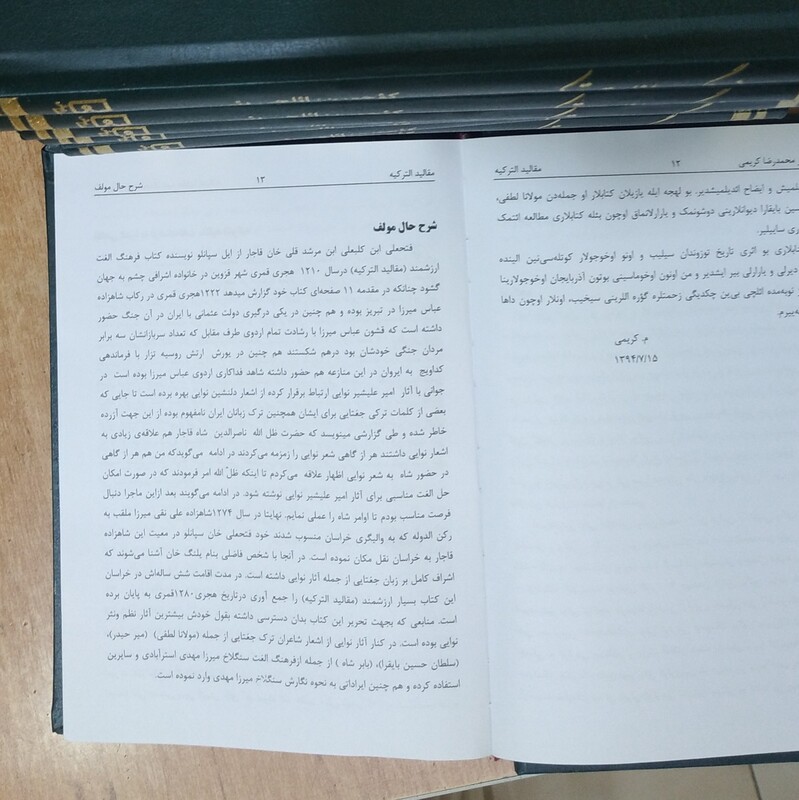 محمدرضا کریمی
۱۲
مقالید الترکیه
لمیش و ایضاح ائدیلمیشدیر. بو لهجه ایله یازیلان کتابلار او جمله‌دن مولانا لطفی،
سین بایقارا دیوانلارینی دوشونمک و یارارلانماق اوچون بئله کتابلاری مطالعه ائتمک
ری سایبلیر.
تابلاری بو اثری تاریخ توزوندان سیلیب و اونو اوخوجولار کوتله‌سی‌نین الینده
دیرلی و یارارلی بیر ایشدیر و من اونون اوخوماسینی بوتون آذربایجان اوخوجولارینا
نوبه‌مده ائلچی بی‌ین چکدیگی زحمتلره گؤره اللرینی سیخیب، اونلار اوچون داها
ه‌ییرم.
م. کریمی
۱۳۹۴/۷/۱۵
مقالید الترکیه
۱۳
شرح حال مولف
شرح حال مولف
فتحعلی ابن کلبعلی ابن مرشد قلی خان قاجار از ایل سپانلو نویسنده کتاب فرهنگ الغت
ارزشمند (مقالید الترکیه) درسال ۱۲۱۰ هجری قمری شهر قزوین در خانواده اشرافی چشم به جهان
گشود چنانکه در مقدمه ۱۱ صفحه‌ای کتاب خود گزارش میدهد ۱۲۲۲هجری قمری در رکاب شاهزاده
عباس میرزا در تبریز بوده و هم چنین در یکی درگیری دولت عثمانی با ایران در آن جنگ حضور
داشته است که قشون عباس میرزا با رشادت تمام اردوی طرف مقابل که تعداد سربازانشان سه برابر
مردان جنگی خودشان بود درهم شکستند هم چنین در یورش ارتش روسیه تزار با فرماندهی
کداویچ به ایروان در این منازعه هم حضور داشته شاهد فداکاری اردوی عباس میرزا بوده است در
جوانی با آثار امیر علیشیر نوایی ارتباط برقرار کرده از اشعار دلنشین نوایی بهره برده است تا جایی که
بعضی از کلمات ترکی جغتایی برای ایشان همچنین ترک زبانان ایران نامفهوم بوده از این جهت آزرده
خاطر شده و طی گزارشی مینویسد که حضرت ظل الله ناصرالدین شاه قاجار هم علاقه‌ی زیادی به
اشعار نوایی داشتند هر از گاهی شعر نوایی را زمزمه می‌کردند در ادامه می‌گویدکه من هم هر از گاهی
در حضور شاه به شعر نوایی اظهار علاقه می‌کردم تا اینکه ظلّ الله امر فرمودند که در صورت امکان
حل الغت مناسبی برای آثار امیر علیشیر نوایی نوشته شود. در ادامه می‌گویند بعد ازاین ماجرا دنبال
فرصت مناسب بودم تا اوامر شاه را عملی نمایم. نهایتا در سال ۱۲۷۴شاهزاده علی نقی میرزا ملقب به
رکن الدوله که به والیگری خراسان منسوب شدند خود فتحعلی خان سپانلو در معیت این شاهزاده
قاجار به خراسان نقل مکان نموده است. در آنجا با شخص فاضلی بنام پلنگ خان آشنا می‌شوند که
اشراف کامل بر زبان جغتایی از جمله آثار نوایی داشته است. در مدت اقامت شش ساله‌اش در خراسان
این کتاب بسیار ارزشمند (مقالید الترکیه) را جمع آوری درتاریخ هجری۱۲۸۰قمری به پایان برده
است. منابعی که بجهت تحریر این کتاب بدان دسترسی داشته بقول خودش بیشترین آثار نظم ونثر
نوایی بوده است. در کنار آثار نوایی از اشعار شاعران ترک جغتایی از جمله (مولانا لطفی) (میر حیدر)،
(سلطان حسین بایقرا)، (بابر شاه ) از جمله ازفرهنگ الغت سنگلاخ میرزا مهدی استرآبادی و سایرین
استفاده کرده و هم چنین ایراداتی به نحوه نگارش سنگلاخ میرزا مهدی وارد نموده است.